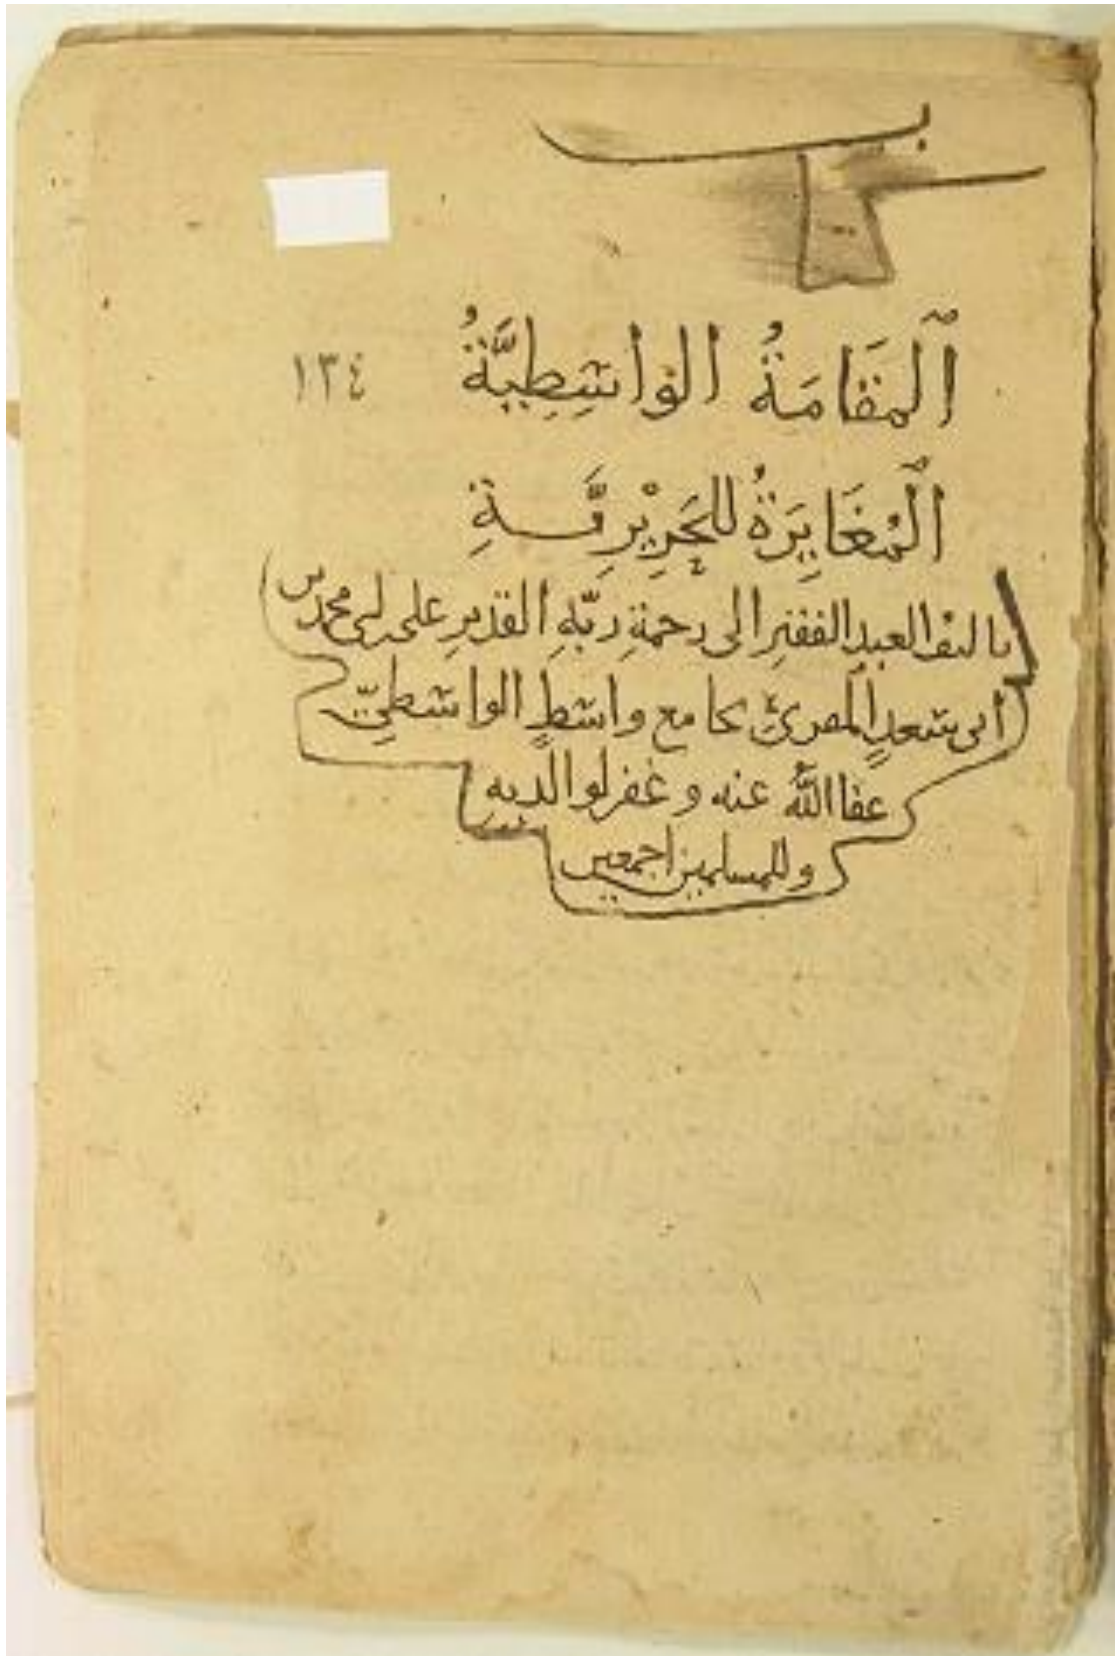 اَلْمَقَامَةُ الواسِطِيَّةُ ١٣٤
اَلْمُغَايِرَةُ للحَرِيْرِيَّةِ
تاليف العبدِ الفقيرِ الى رحمةِ ربّهِ القديرِ على بن محمد بن
أبى سعدٍ المقرئ بجامع واسطٍ الواسطيّ
عفا اللّه عنه وغفر لوالديه
وللمسلمين اجمعين